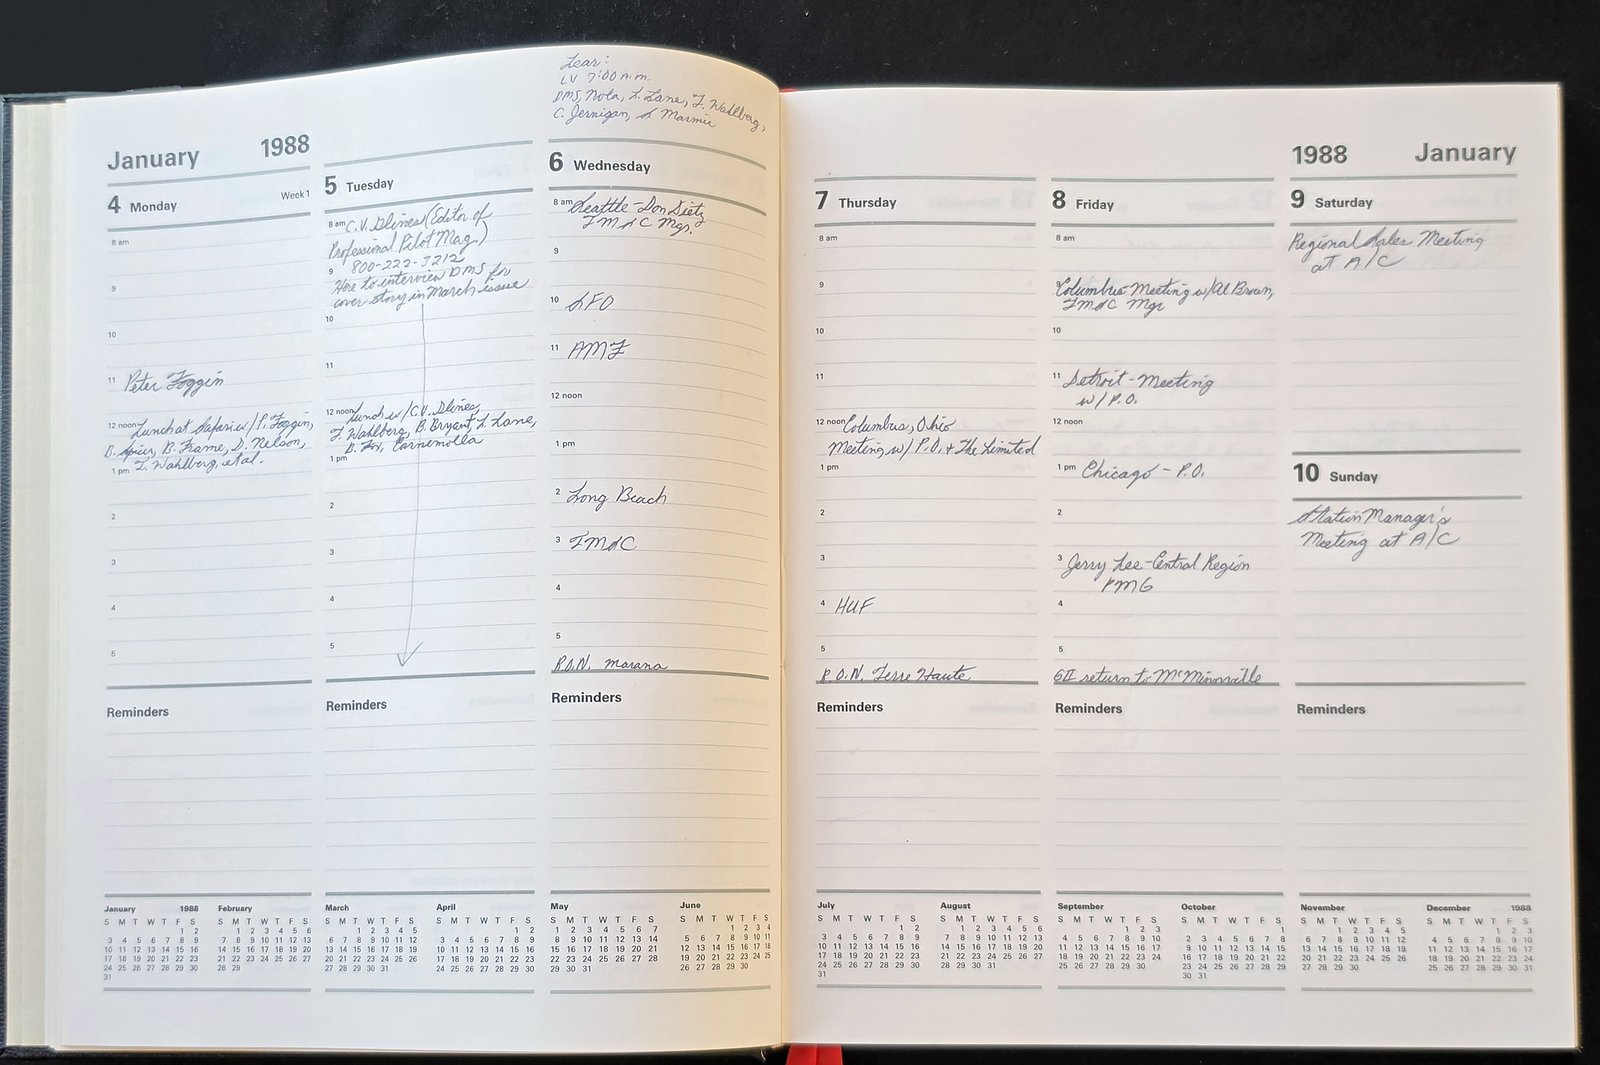 January 1988
4 Monday Week 1
8 am
9
10
11 Peter Foggin
12 noon Lunch at Safari w/ P. Foggin,
D. Spicer, B. Frame, D. Nelson,
1 pm T. Wahlberg, et al.
2
3
4
5
Reminders
5 Tuesday
8 am C.V. Glines (Editor of
Professional Pilot Mag.)
800-222-3212
9
Here to interview DMS for
cover story in March issue
10
11
12 noon Lunch w/ C.V. Glines,
T. Wahlberg, B. Bryant, L. Lane,
D. Fox, Carnemolla
1 pm
2
3
4
5
Reminders
Lear:
LV 7:00 A.M.
DMS, Nola, L. Lane, T. Wahlberg,
C. Jernigan, S. Marmie
6 Wednesday
8 am Seattle - Don Dietz
TM&C Mgr.
9
10 SFO
11 AMF
12 noon
1 pm
2 Long Beach
3 TM&C
4
5
R.O.N. Marana
Reminders
7 Thursday
8 am
9
10
11
12 noon Columbus, Ohio
Meeting w/ P.O. + The Limited
1 pm
2
3
4 HUF
5
R.O.N. Terre Haute
Reminders
8 Friday
8 am
9 Columbus Meeting w/ Al Brown,
TM&C Mgr
10
11 Detroit - Meeting
w/ P.O.
12 noon
1 pm Chicago - P.O.
2
3 Jerry Lee - Central Region
PMG
4
5
GII return to McMinnville
Reminders
1988 January
9 Saturday
Regional Sales Meeting
at A/C
10 Sunday
Station Manager's
Meeting at A/C
Reminders
January 1988
S M T W T F S
1 2
3 4 5 6 7 8 9
10 11 12 13 14 15 16
17 18 19 20 21 22 23
24 25 26 27 28 29 30
31
February
S M T W T F S
1 2 3 4 5 6
7 8 9 10 11 12 13
14 15 16 17 18 19 20
21 22 23 24 25 26 27
28 29
March
S M T W T F S
1 2 3 4 5
6 7 8 9 10 11 12
13 14 15 16 17 18 19
20 21 22 23 24 25 26
27 28 29 30 31
April
S M T W T F S
1 2
3 4 5 6 7 8 9
10 11 12 13 14 15 16
17 18 19 20 21 22 23
24 25 26 27 28 29 30
May
S M T W T F S
1 2 3 4 5 6 7
8 9 10 11 12 13 14
15 16 17 18 19 20 21
22 23 24 25 26 27 28
29 30 31
June
S M T W T F S
1 2 3 4
5 6 7 8 9 10 11
12 13 14 15 16 17 18
19 20 21 22 23 24 25
26 27 28 29 30
July
S M T W T F S
1 2
3 4 5 6 7 8 9
10 11 12 13 14 15 16
17 18 19 20 21 22 23
24 25 26 27 28 29 30
31
August
S M T W T F S
1 2 3 4 5 6
7 8 9 10 11 12 13
14 15 16 17 18 19 20
21 22 23 24 25 26 27
28 29 30 31
September
S M T W T F S
1 2 3
4 5 6 7 8 9 10
11 12 13 14 15 16 17
18 19 20 21 22 23 24
25 26 27 28 29 30
October
S M T W T F S
1
2 3 4 5 6 7 8
9 10 11 12 13 14 15
16 17 18 19 20 21 22
23 24 25 26 27 28 29
30 31
November
S M T W T F S
1 2 3 4 5
6 7 8 9 10 11 12
13 14 15 16 17 18 19
20 21 22 23 24 25 26
27 28 29 30
December 1988
S M T W T F S
1 2 3
4 5 6 7 8 9 10
11 12 13 14 15 16 17
18 19 20 21 22 23 24
25 26 27 28 29 30 31